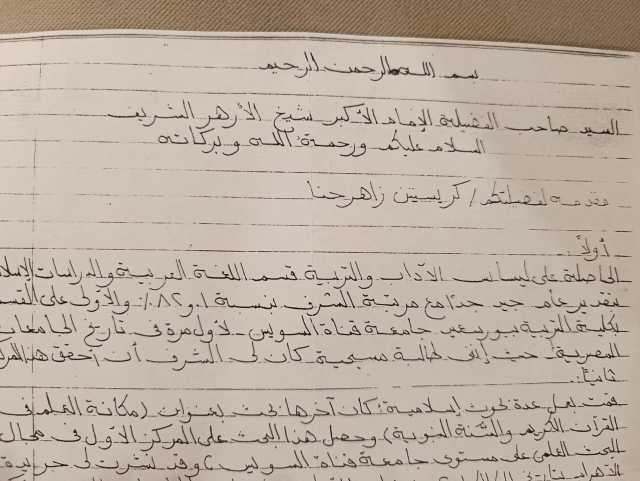 بسم الله الرحمن الرحيم
السيد صاحب الفضيلة الإمام الأكبر شيخ الأزهر الشريف
السلام عليكم ورحمة الله وبركاته
مقدمه لفضيلتكم / كريستين زاهر حنا
أولاً:-
الحاصلة على ليسانس الآداب والتربية قسم اللغة العربية والدراسات الإسلا
بتقدير عام جيد جدًا مع مرتبة الشرف بنسبة ٨٢٫١٪ والأولى على القسم
بكلية التربية ببورسعيد جامعة قناة السويس - لأول مرة فى تاريخ الجامعات
المصرية - حيث إننى طالبة مسيحية كان لى الشرف أن أحقق هذا المركز
ثانيًا:-
قمت بعمل عدة بحوث إسلامية: كان آخرها بحث بعنوان (مكانة العلم فى
القرآن الكريم والسُّنة النبوية) وحصل هذا البحث على المركز الأول فى مجال
البحث العلمى على مستوى جامعة قناة السويس) وقد نشرت لى جريدة
الأهرام بتاريخ